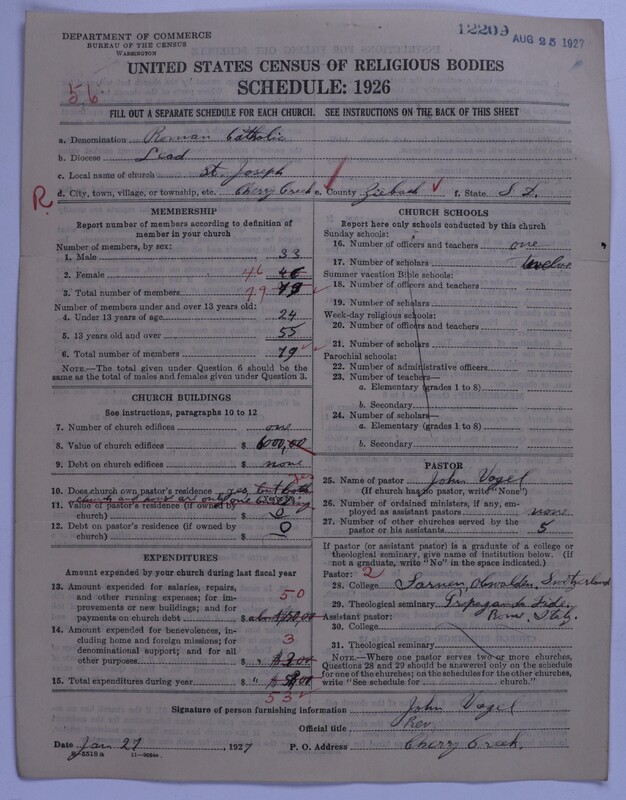 DEPARTMENT OF COMMERCE
BUREAU OF THE CENSUS
WASHINGTON
12209 AUG 25 1927
UNITED STATES CENSUS OF RELIGIOUS BODIES
SCHEDULE: 1926
56
FILL OUT A SEPARATE SCHEDULE FOR EACH CHURCH. SEE INSTRUCTIONS ON THE BACK OF THIS SHEET
a. Denomination Roman Catholic
b. Diocese Lead
c. Local name of church St. Joseph
R. d. City, town, village, or township, etc. Cherry Creek e. County Ziebach f. State S. D.
MEMBERSHIP
Report number of members according to definition of member in your church
Number of members, by sex:
1. Male 33
2. Female 46 46
3. Total number of members 79 79
Number of members under and over 13 years old:
4. Under 13 years of age 24
5. 13 years old and over 55
6. Total number of members 79
NOTE.—The total given under Question 6 should be the same as the total of males and females given under Question 3.
CHURCH BUILDINGS
See instructions, paragraphs 10 to 12
7. Number of church edifices one
8. Value of church edifices $ 6000,00
9. Debt on church edifices $ none
10. Does church own pastor's residence yes but both yes
church and house are only one building
11. Value of pastor's residence (if owned by church) $ 0
12. Debt on pastor's residence (if owned by church) $ 0
EXPENDITURES
Amount expended by your church during last fiscal year
13. Amount expended for salaries, repairs, and other running expenses; for improvements or new buildings; and for payments on church debt 50 $ abt $50,00
14. Amount expended for benevolences, including home and foreign missions; for denominational support; and for all other purposes 3 $ " $3.00
15. Total expenditures during year $ "
53
CHURCH SCHOOLS
Report here only schools conducted by this church
Sunday schools:
16. Number of officers and teachers one
17. Number of scholars twelve
Summer vacation Bible schools:
18. Number of officers and teachers
19. Number of scholars
Week-day religious schools:
20. Number of officers and teachers
21. Number of scholars
Parochial schools:
22. Number of administrative officers
23. Number of teachers—
a. Elementary (grades 1 to 8)
b. Secondary
24. Number of scholars—
a. Elementary (grades 1 to 8)
b. Secondary
PASTOR
25. Name of pastor John Vogel
(If church has no pastor, write "None")
26. Number of ordained ministers, if any, employed as assistant pastors none
27. Number of other churches served by the pastor or his assistants 5
If pastor (or assistant pastor) is a graduate of a college or theological seminary, give name of institution below. (If not a graduate, write "No" in the space indicated.)
Pastor: 2
28. College Sarnen, Obwalden, Switzerland
29. Theological seminary Propaganda Fide,
Assistant pastor: Rome, Italy.
30. College
31. Theological seminary
NOTE.—Where one pastor serves two or more churches, Questions 28 and 29 should be answered only on the schedule for one of the churches; on the schedules for the other churches, write "See schedule for church."
Signature of person furnishing information John Vogel
Official title Rev.
Date Jan 27, 1927 P. O. Address Cherry Creek.